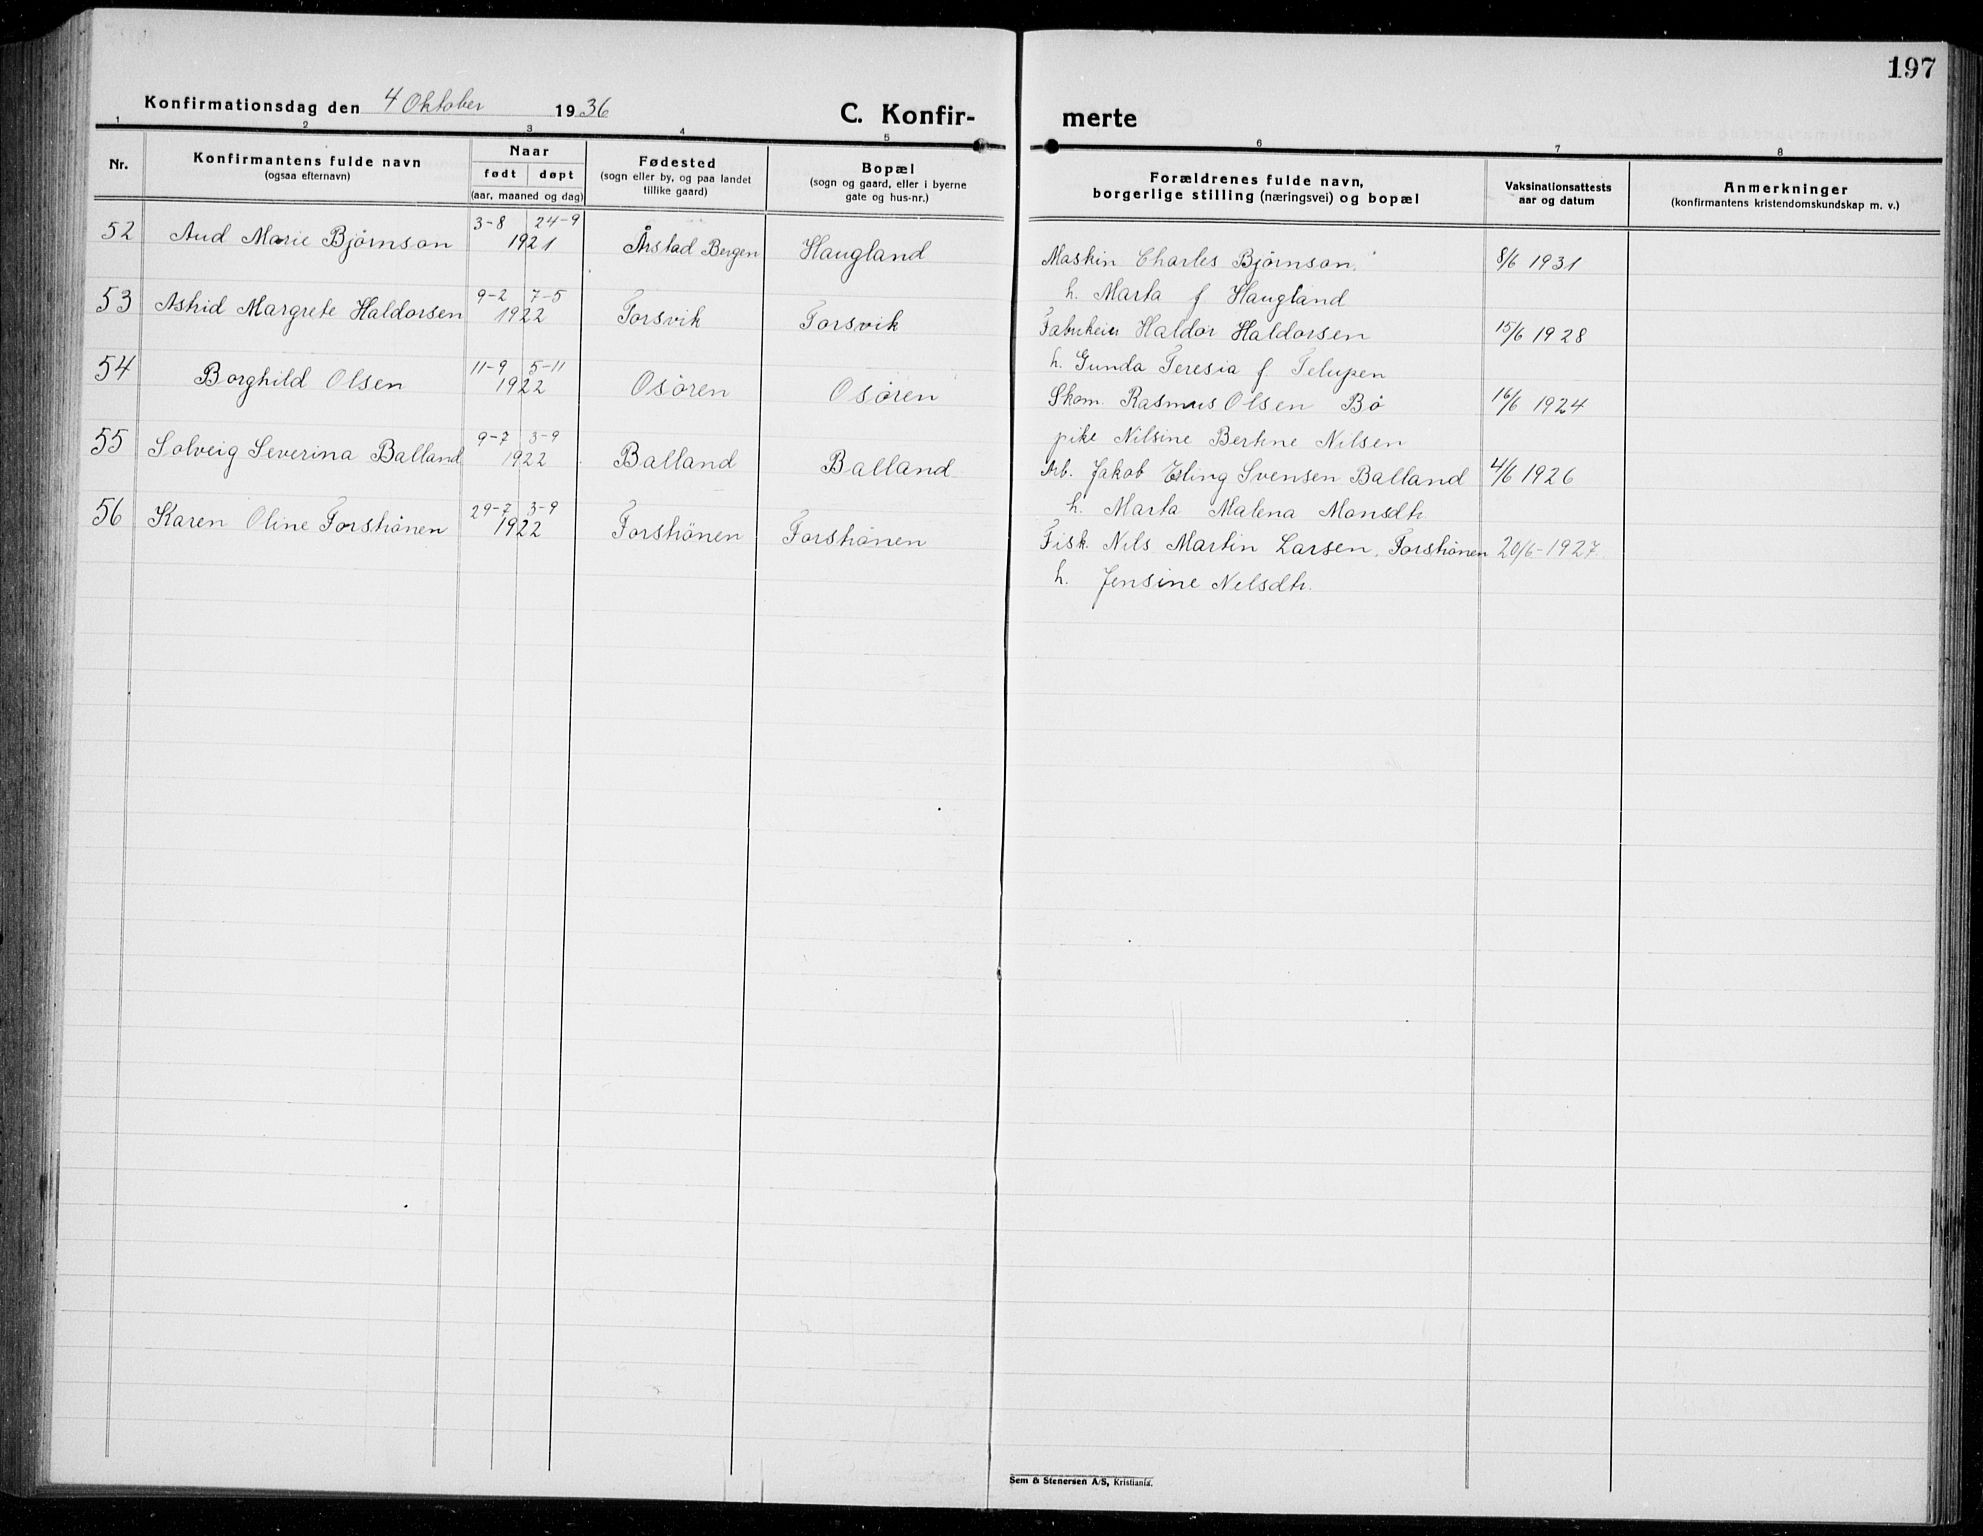 197
Konfirmationsdag den 4 Oktober 1936 C. Konfir- merte
1 2 3 4 5 6 7 8
Nr.
Konfirmantens fulde navn
(ogsaa efternavn)
Naar
født døpt
(aar, maaned og dag)
Fødested
(sogn eller by, og paa landet
tillike gaard)
Bopæl
(sogn og gaard, eller i byerne
gate og hus-nr.)
Forældrenes fulde navn,
borgerlige stilling (næringsvei) og bopæl
Vaksinationsattests
aar og datum
Anmerkninger
(konfirmantens kristendomskundskap m. v.)
52 Aud Marie Bjørnson 3-8 24-9 1921 Årstad Bergen Haugland Maskin Charles Bjørnson. 8/6 1931
h. Marta f Haugland
53 Astrid Margrete Haldorsen 9-2 7-5 1922 Torsvik Torsvik Haldor Haldorsen 15/6 1928
h. Gunda Teresia f
54 Borghild Olsen 11-9 5-11 1922 Osøren Osøren Skom. Rasmus Olsen Bø 16/6 1924
pike Nilsine Bertine Nilsen
55 Solveig Severina Balland 9-7 3-9 1922 Balland Balland Arb. Jakob Esling Svensen Balland 4/6 1926
h. Marta Malena Monsdtr
56 Karen Oline Torshønen 29-7 3-9 1922 Torshønen Torshønen Fisk. Nils Martin Larsen, Torshønen 20/6-1927.
h. Jensine Nilsdtr.
Sem & Stenersen A/S, Kristiania.